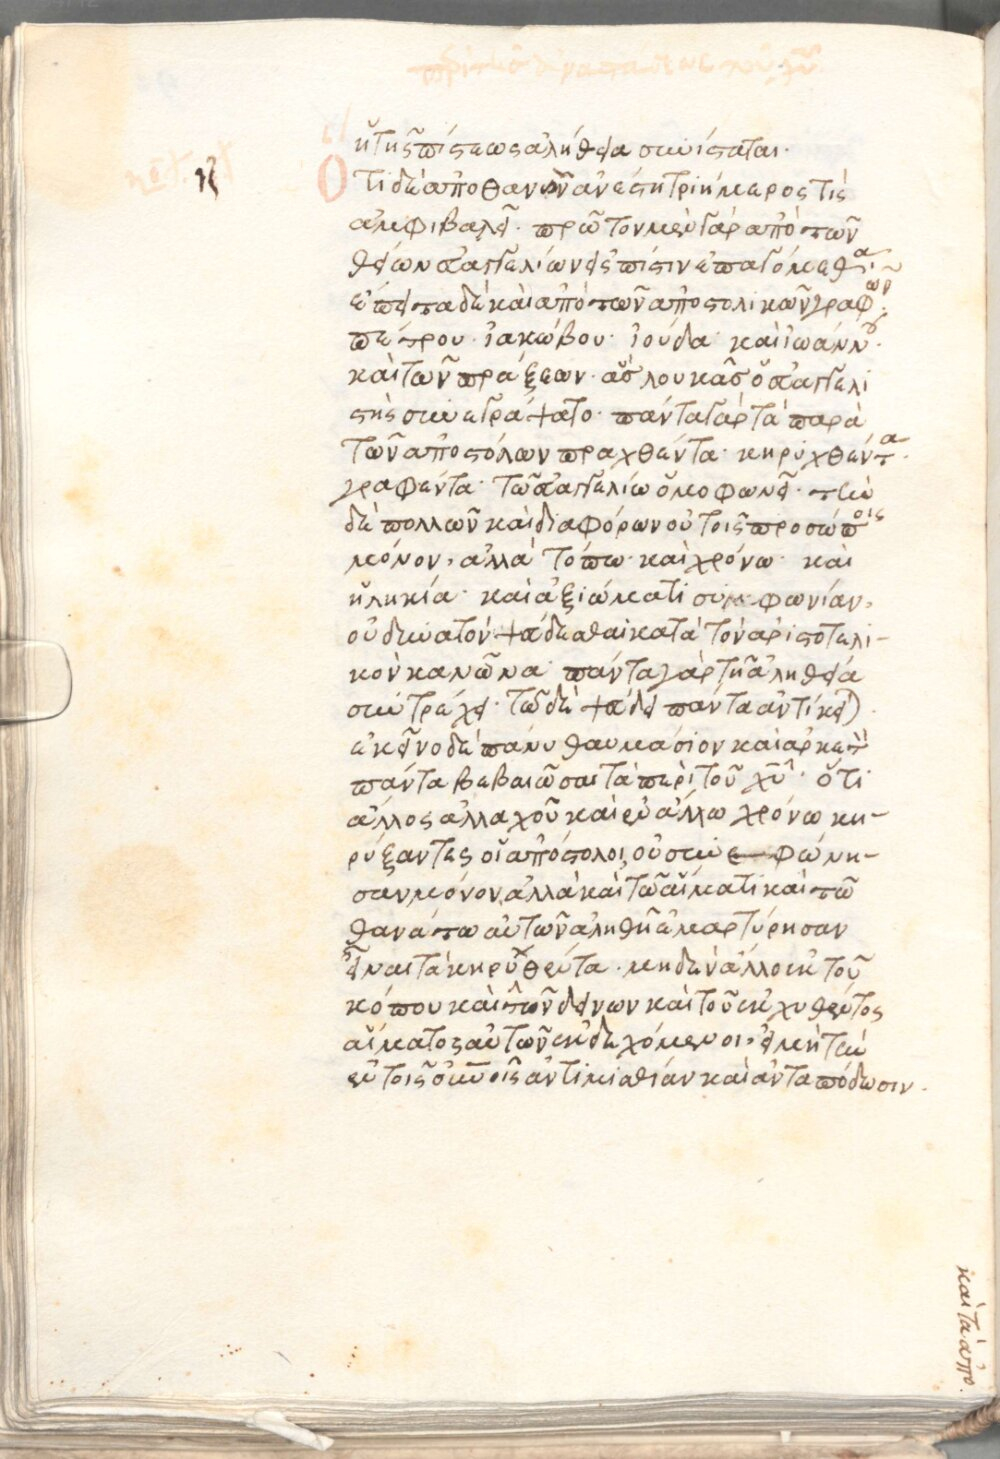 περὶ τῆς ἀναστάσεως τοῦ χ͞υ
ἡ τῆς πίστεως ἀλήθεια συνίσταται·
ιζ
Ὅτι δὲ ἀποθανὼν ἀνέστη τριήμερος τίς
ἀμφιβαλεῖ· πρῶτον μὲν γὰρ ἀπὸ τῶν
θείων εὐαγγελίων εἰς πίστιν ἐπαγόμεθα·
ἔπειτα δὲ καὶ ἀπὸ τῶν ἀποστολικῶν γραφῶν·
πέτρου· ἰακώβου· ἰούδα· καὶ ἰωάννου·
καὶ τῶν πράξεων· ἃς λουκᾶς ὁ εὐαγγελι
στὴς συνεγράψατο· πάντα γὰρ τὰ παρὰ
τῶν ἀποστόλων πραχθέντα· κηρυχθέντα·
γραφέντα· τῶ εὐαγγελίω ὁμοφωνεῖ· τὴν
δὲ πολλῶν καὶ διαφόρων οὐ τοῖς προσώποις
μόνον, ἀλλὰ τόπω· καὶ χρόνω· καὶ
ἡλικία· καὶ ἀξιώματι συμφωνίαν,
οὐ δυνατὸν ψεύδεσθαι κατὰ τὸν ἀριστοτελι-
κὸν κανῶνα· πάντα γὰρ τῆ ἀληθεία
συντρέχει· τῶ δὲ ψεύδει πάντα ἀντίκειται·
ἐκεῖνο δὲ πάνυ θαυμάσιον καὶ ἀρκετὸν
πάντα βεβαιῶσαι τὰ περὶ τοῦ χ͞υ· ὅτι
ἄλλος ἀλλαχοῦ καὶ ἐν ἄλλω χρόνω κη-
ρύξαντες οἱ ἀπόστολοι, οὐ συνεφώνη-
σαν μόνον, ἀλλὰ καὶ τῶ αἵματι καὶ τῶ
θανάτω αὐτῶν ἀληθῆ ἐμαρτύρησαν
εἶναι τὰ κηρυχθέντα· μηδὲν ἄλλο ἐκ τοῦ
κόπου καὶ τῶν δεινων καὶ τοῦ ἐκχυθέντος
αἵματος αὐτῶν ἐκδεχόμενοι, εἰ μὴ τὴν
ἐν τοῖς οὐνοῖς ἀντιμισθίαν καὶ ἀνταπόδωσιν·
καὶ τὰ ἀπο